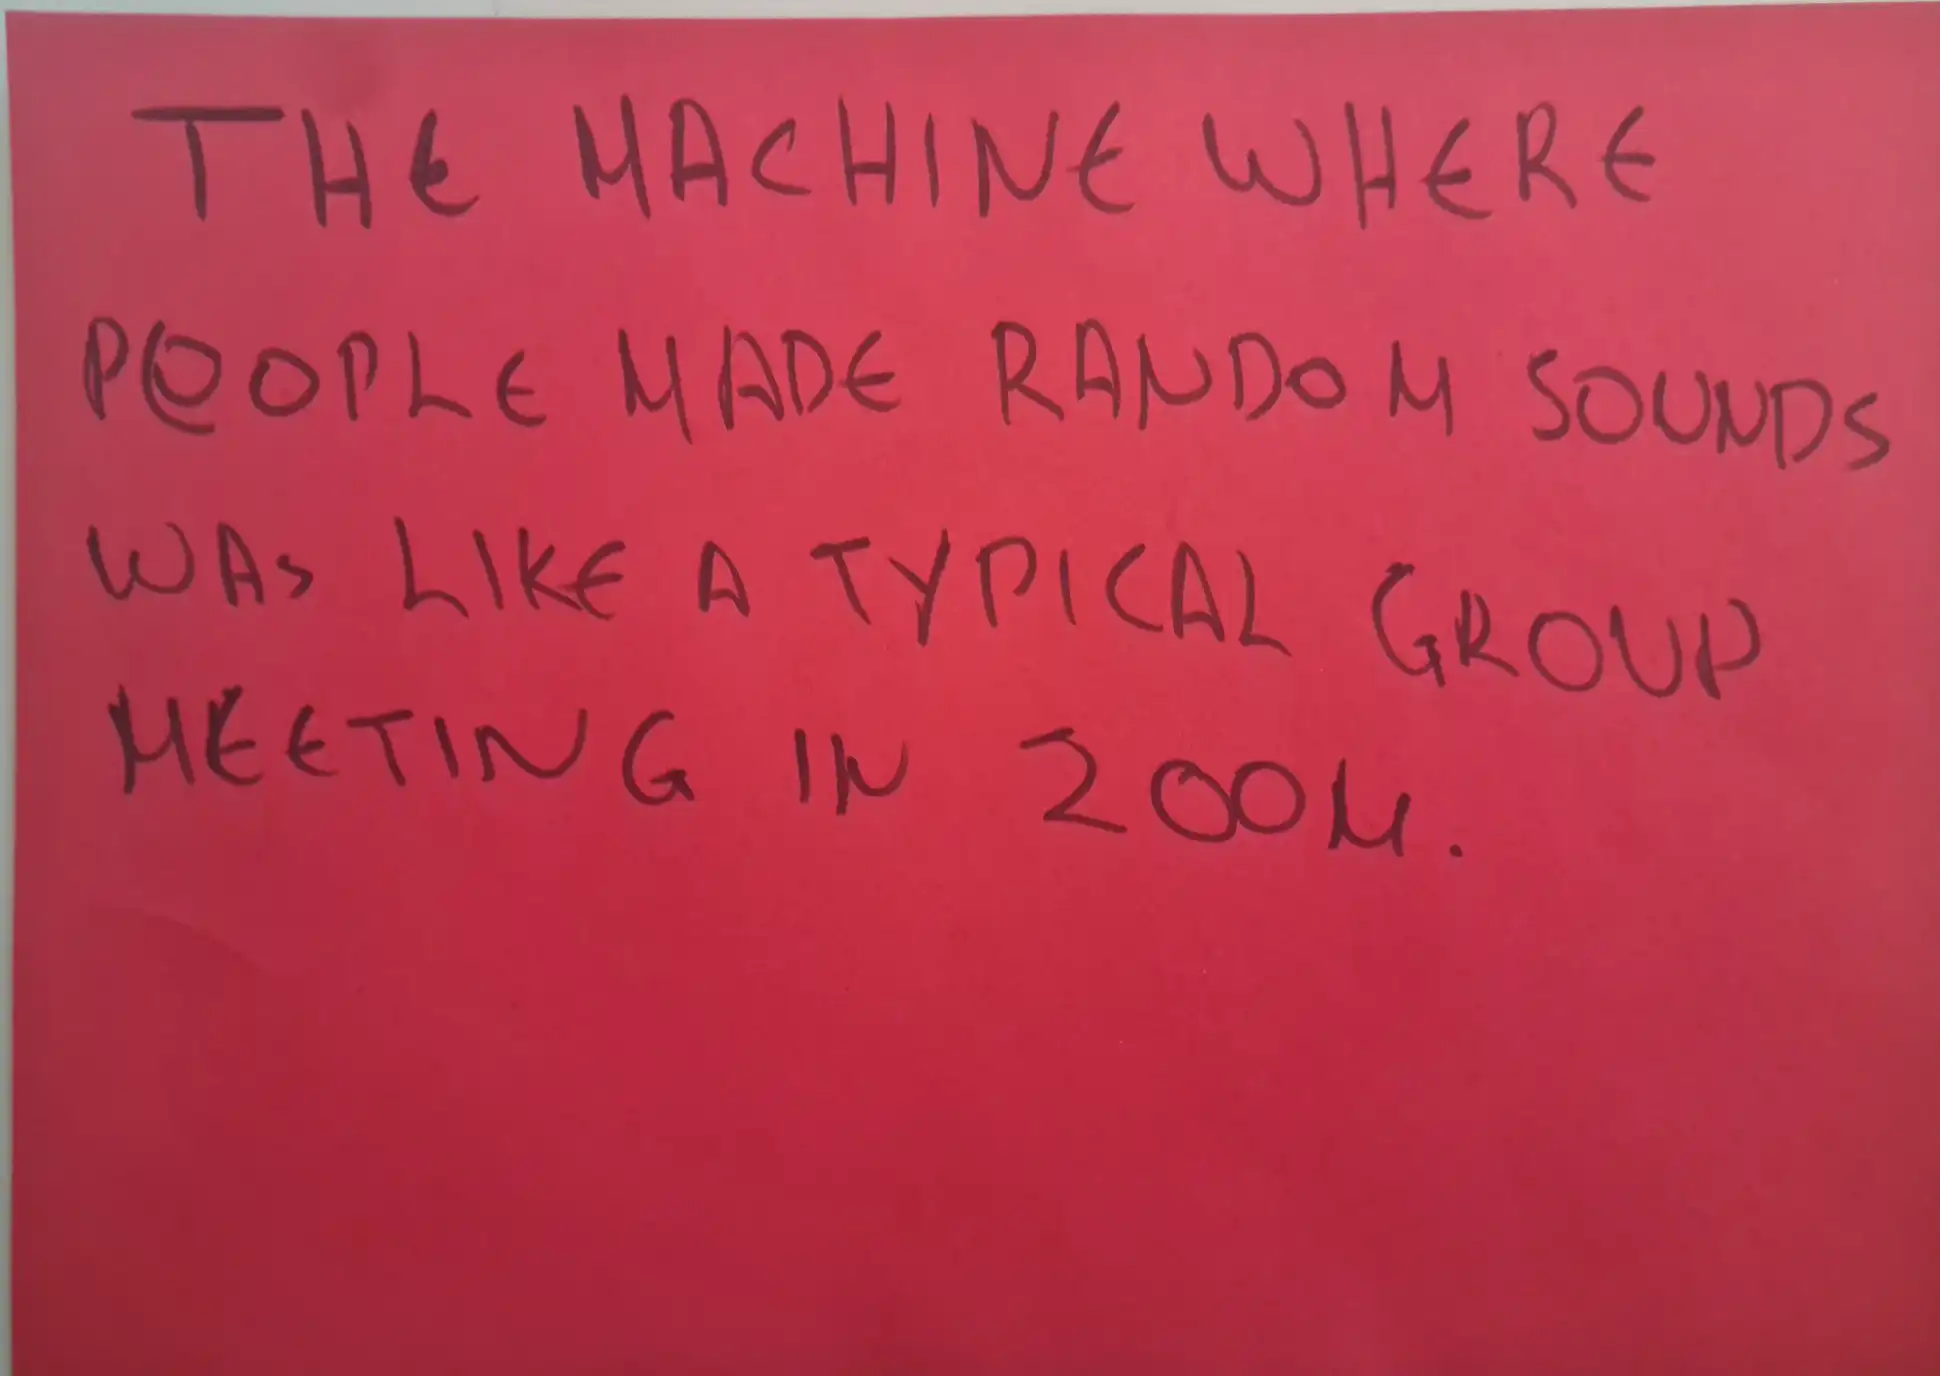 THE MACHINE WHERE
PEOPLE MADE RANDOM SOUNDS
WAS LIKE A TYPICAL GROUP
MEETING IN ZOOM.